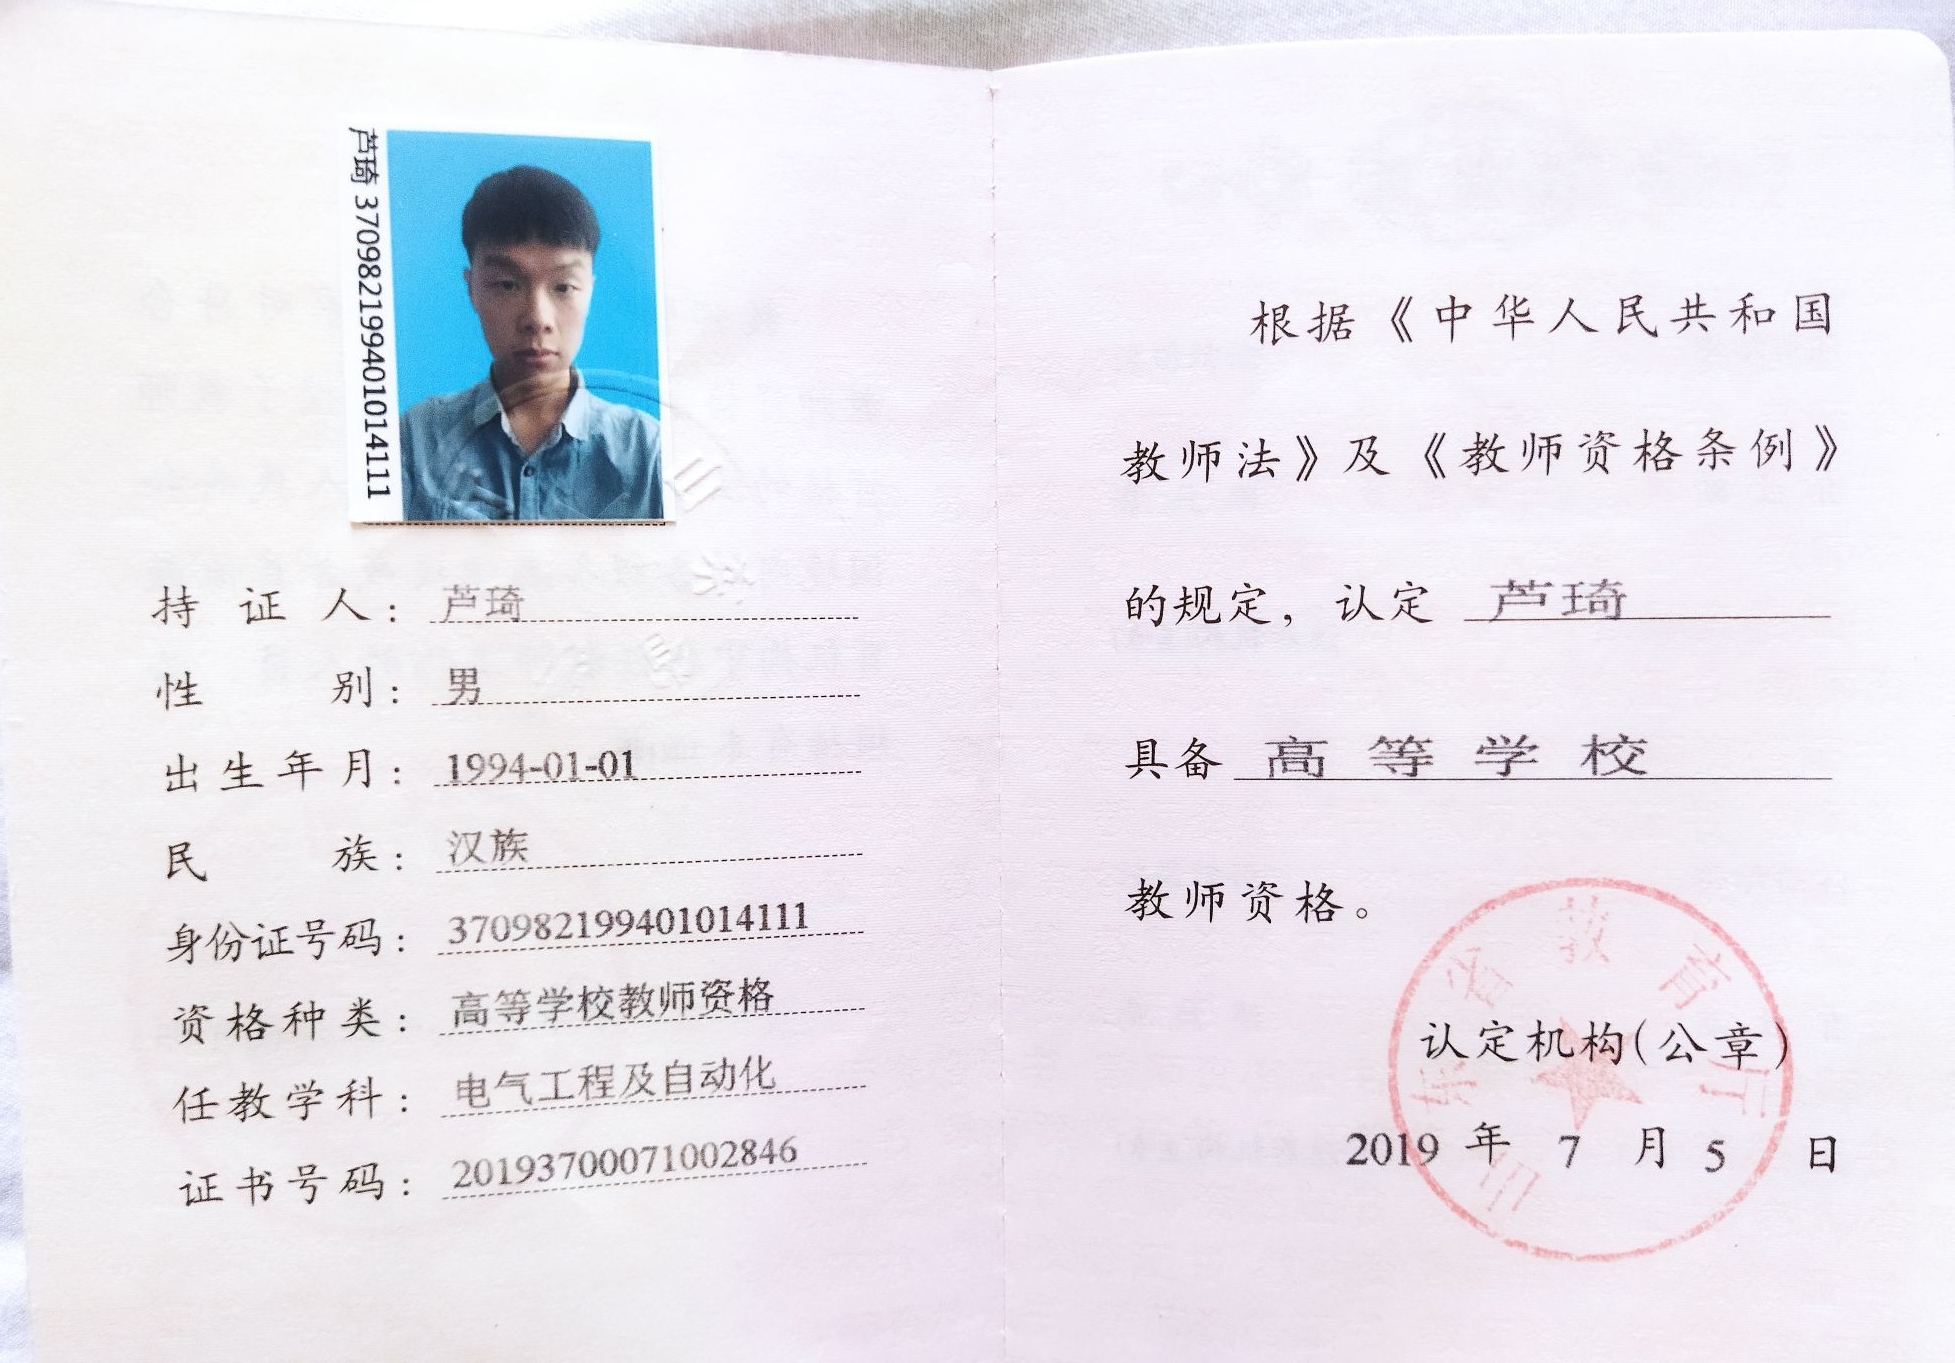 芦琦 370982199401014111
持证人：芦琦
性别：男
出生年月：1994-01-01
民族：汉族
身份证号码：370982199401014111
资格种类：高等学校教师资格
任教学科：电气工程及自动化
证书号码：20193700071002846
根据《中华人民共和国
教师法》及《教师资格条例》
的规定，认定 芦琦
具备 高等学校
教师资格。
山东省教育厅
认定机构(公章)
2019 年 7 月 5 日